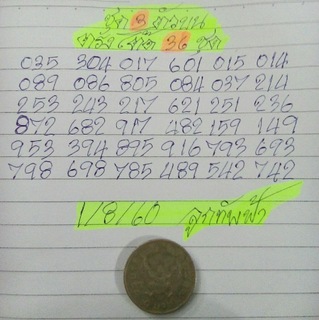 ชุด 3 ตัวบน
36 ชุด
035 304 017 601 015 014
089 086 805 084 037 214
253 243 217 621 251 236
872 682 917 482 159 149
953 394 895 916 793 693
798 698 785 489 542 742
1/8/60 ลูกทัพฟ้า